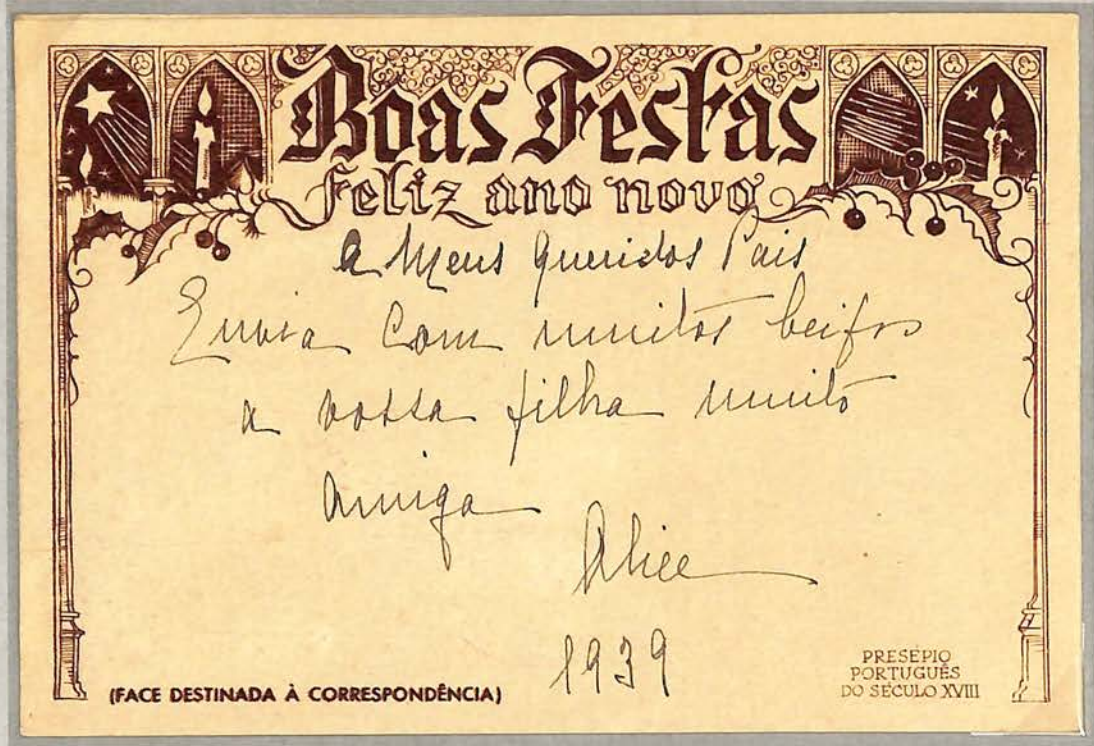 Boas Festas
feliz ano novo
a Meus queridos Pais
Envia com muitos beijos
a vossa filha muito
amiga
Alice
1939
(FACE DESTINADA À CORRESPONDÊNCIA)
PRESÉPIO
PORTUGUÊS
DO SÉCULO XVIII